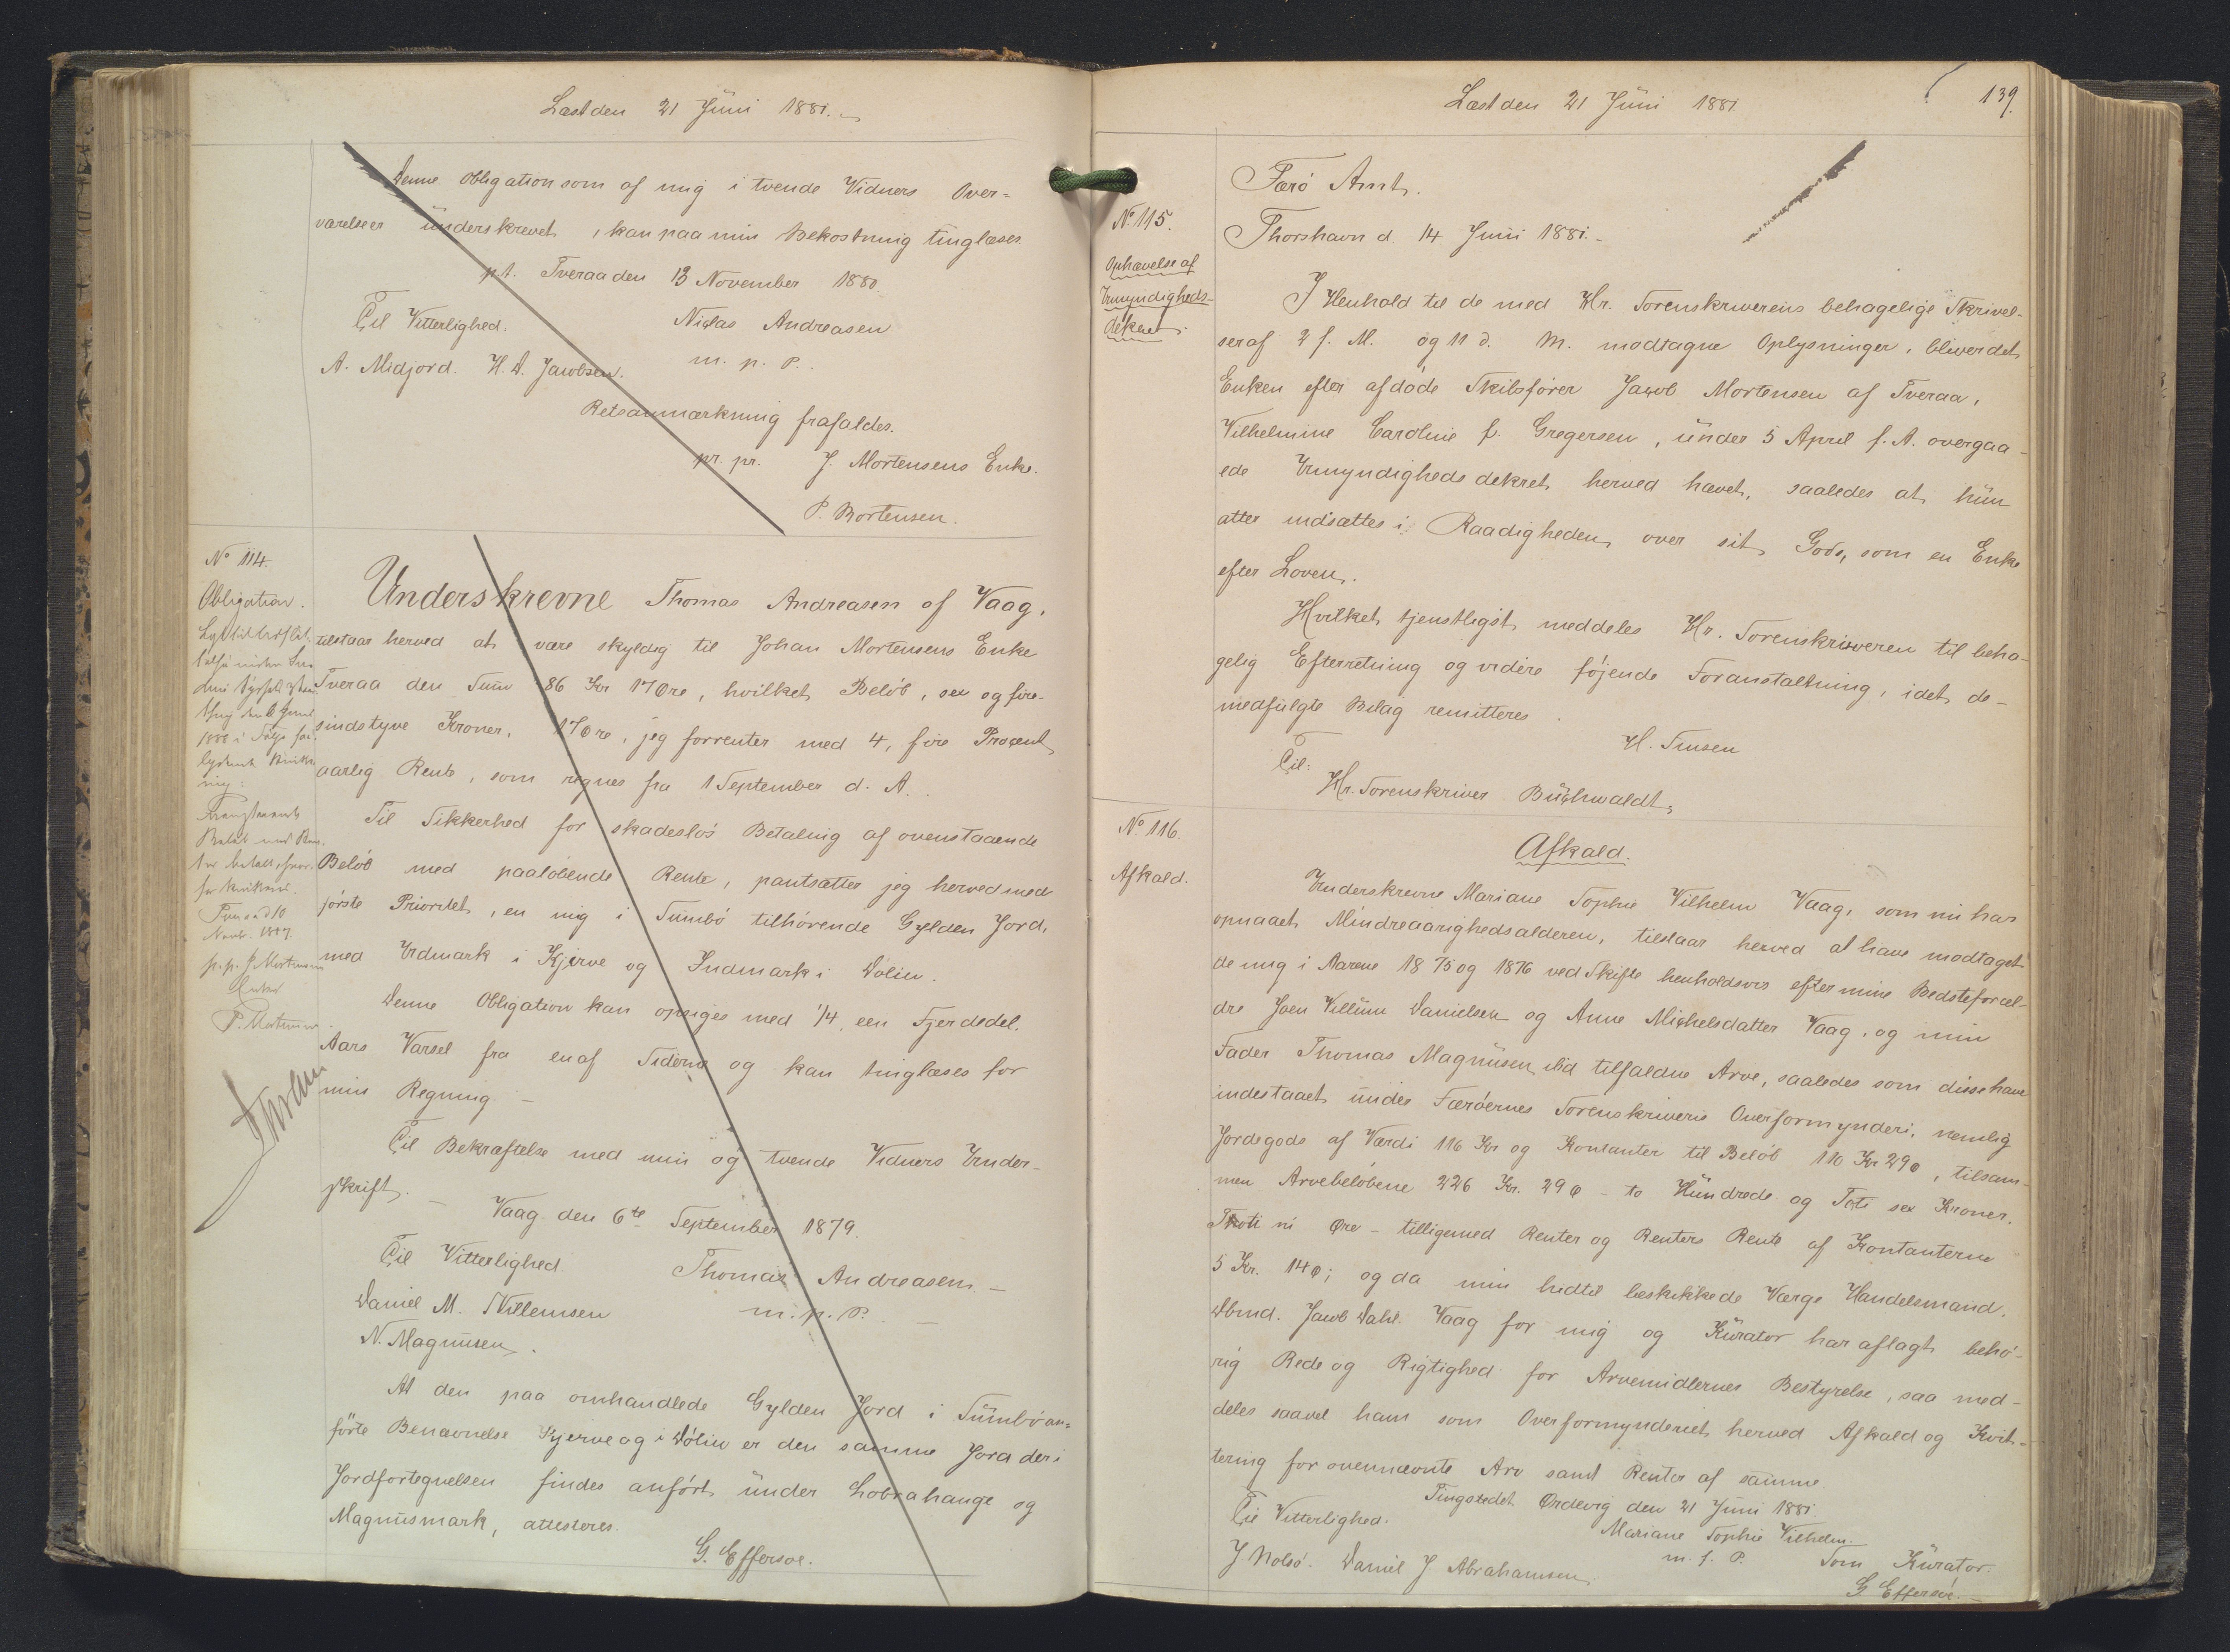 Læst den 21 Juni 1881.
Denne Obligation som af mig i tvende Vidners Over=
værelse er underskrevet, kan paa min Bekostning tinglæses
p.t. Tveraa den 13 November 1880.
Til Vitterlighed. Niclas Andreasen
A. Midjord. H. D. Jacobsen. m. p. P.
Retsanmærkning frafaldes.
pr. pr. J. Mortensens Enke.
P. Mortensen.
No 114.
Obligation.
Underskrevne Thomas Andreasen af Vaag,
tilstaar herved at være skyldig til Johan Mortensens Enke
Tveraa den Sum 86 Kr 17 Øre, hvilket Beløb, sex og fire-
sindstyve Kroner, 17 Øre, jeg forrenter med 4, fire Procent
aarlig Rente, som regnes fra 1 September d. A.
Til Sikkerhed for skadesløs Betaling af ovenstaaende
Beløb med paaløbende Rente, pantsætter jeg herved med
første Prioritet, en mig i Sumbø tilhørende Gylden Jord,
med Udmark i Kjerve og Indmark i Dølin.
Denne Obligation kan opsiges med 1/4, een Fjerdedel.
Aars Varsel fra en af Siderne og kan tinglæses for
min Regning –
Til Bekræftelse med min og tvende Vidners Under-
skrift. –
Vaag den 6te September 1879.
Til Vitterlighed Thomas Andreasen –
Daniel M. Villemsen m. p. P. –
N. Magnusen.
At den paa omhandlede Gylden Jord i Sumbø an=
førte Benævnelse Kjerve og i Dølin er den samme Jord der i
Jordfortegnelsen findes anført under Lobrahange og
Magnusmark, attesteres.
G. Effersøe.
1888 i Følge saa-
lydende
Beløb med Ren-
ter betalt, hvor-
for kvitteres.
Tveraa d 10
Novb. 1887.
p. p. J. Mortensens
Enke
P. Mortensen
Læst den 21 Juni 1881
139.
No. 115.
Ophævelse af
Umyndigheds-
dekret.
Færø Amt.
Thorshavn d. 14 Juni 1881. –
I Henhold til de med Hr. Sorenskriverens behagelige Skrivel-
ser af 2 f. M. og 11 d. M. modtagne Oplysninger, bliver det
Enken efter afdøde Skibsfører Jacob Mortensen af Tveraa,
Vilhelmine Caroline f. Gregersen, under 5 April f. A. overgaa-
ede Umyndigheds dekret herved hævet, saaledes at hun
atter indsættes i Raadigheden over sit Gods, som en Enke
efter Loven.
Hvilket tjenstligst meddeles Hr. Sorenskriveren til beha-
gelig Efterretning og videre føjende Foranstaltning, idet de-
medfulgte Bilag remitteres.
H. Finsen
Til:
Hr. Sorenskriver Buchwaldt.
No. 116.
Afkald.
Afkald.
Underskrevne Mariane Sophie Vilhelm Vaag, som nu har
opnaaet Mindreaarighedsalderen, tilstaar herved at have modtaget
de mig i Aarene 1875 og 1876 ved Skifte henholdsvis efter mine Bedsteforæl-
dre Joen Villum Danielsen og Anne Michelsdatter Vaag, og min
Fader Thomas Magnusen ibd tilfaldne Arve, saaledes som disse have
indestaaet under Færøernes Sorenskriveris Overformynderi, nemlig
Jordegods af Værdi 116 Kr og Kontanter til Beløb 110 Kr 29 ø, tilsam-
men Arvebeløbene 226 Kr. 29 ø – to Hundrede og Toti sex Kroner.
Toti ni Øre – tilligemed Renter og Renters Rente af Kontanterne
5 Kr. 14 ø; og da min hidtil beskikkede Værge Handelsmand,
Dbmd. Jacob Dahl. Vaag for mig og Kurator har aflagt behø-
rig Rede og Rigtighed for Arvemidlernes Bestyrelse, saa med-
deles saavel ham som Overformynderiet herved Afkald og Kvit-
tering for ovennævnte Arv samt Renter af samme.
Tingstedet Ørdevig den 21 Juni 1881.
Til Vitterlighed. Mariane Sophie Vilhelm.
J Nolsø. Daniel J Abrahamsen m. f. P. Som Kurator.
G Effersøe. –